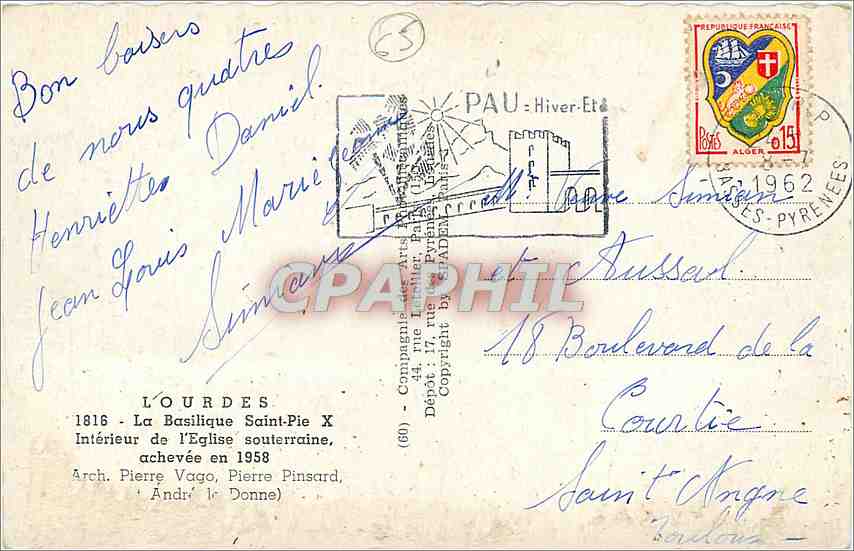 65
Bon baisers
de nous quatres
Henriette Daniel.
Jean Louis Marie
LOURDES
1816 - La Basilique Saint-Pie X
Intérieur de l'Eglise souterraine,
achevée en 1958
Arch. Pierre Vago, Pierre Pinsard,
André le Donne)
(60) - Compagnie des Arts
44, rue Letellier, Paris (15e)
Dépôt : 17, rue des Pyrénées, Lourdes
Copyright by SPADEM Paris
PAU = Hiver-Eté
REPUBLIQUE FRANÇAISE
POSTES
0,15
ALGER
8-7
1962
BASSES-PYRENEES
et Aussal.
18 Boulevard de la
Courtie
Saint Agne
Toulouse
CPAPHIL